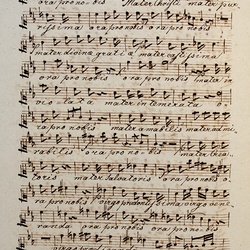 ora pro no=bis Mater Christi mater pu=
rissima ora pro nobis ora pro nobis
mater divina grati a mater castissima
ora pro nobis ora pro nobis mater in
vio lata mater intemerata o=
ra pro nobis mater amabilis mater admi
rabilis ora pro no=bis mater Crea=
toris mater Salvatoris ora pro nobis o=
ra pro nobis virgo prudentissima virgo vene
randa ora pro nobis ora pro nobis